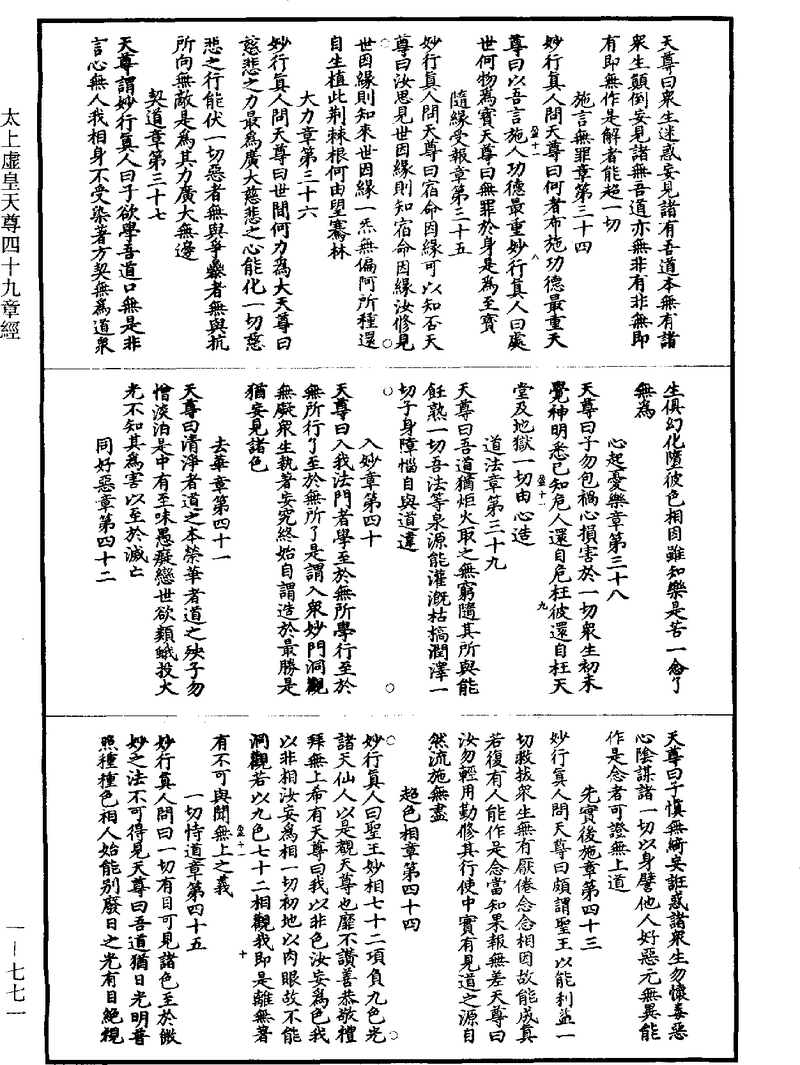 天尊曰衆生迷惑妄見諸有吾道本無有諸
衆生顛倒妄見諸無吾道亦無非有非無即
有即無作是解者能超一切
施言無罪章第三十四
妙行真人問天尊曰何者布施功德最重天
尊曰以吾言施人功德最重妙行真人曰處
世何物為寶天尊曰無罪於身是為至寶
隨緣受報章第三十五
妙行真人問天尊曰宿命因緣可以知否天
尊曰汝思見世因緣則知宿命因緣汝修見
世因緣則知來世因緣一炁無偏阿所種還
自生植此荆棘根何由望騫林
大力章第三十六
妙行真人問天尊曰世間何力為大天尊曰
慈悲之力最為廣大慈悲之心能化一切惡
悲之行能伏一切惡者無與爭暴者無與抗
所向無敵是為其力廣大無邊
契道章第三十七
天尊謂妙行真人曰子欲學吾道口無是非
言心無人我相身不受染著方契無為道衆
生俱幻化墮彼色相因雖知樂是苦一念了
無為
心起憂樂章第三十八
天尊曰子勿包禍心損害於一切衆生初未
覺神明悉已知危人還自危枉彼還自枉天
堂及地獄一切由心造
道法章第三十九
天尊曰吾道猶炬火取之無窮隨其所與能
飪熟一切吾法等泉源能灌溉枯槁潤澤一
切子身障惱自與道違
入妙章第四十
天尊曰入我法門者學至於無所學行至於
無所行了至於無所了是謂入衆妙門洞觀
無礙衆生執著妄究終始自謂造於最勝是
猶妄見諸色
去華章第四十一
天尊曰清淨者道之本榮華者道之殃子勿
憎淡泊是中有至味愚癡戀世欲類蛾投大
光不知其為害以至於滅亡
同好惡章第四十二
天尊曰子慎無綺妄誑惑諸衆生勿懷毒惡
心陰謀諸一切以身譬他人好惡元無異能
作是念者可證無上道
先實後施章第四十三
妙行真人問天尊曰頗謂聖王以能利益一
切救拔衆生無有厭倦念念相因故能成真
若復有人能作是念當知果報無差天尊曰
汝勿輕用勤修其行使中實有見道之源自
然流施無盡
超色相章第四十四
妙行真人曰聖王妙相七十二項負九色光
諸天仙人以是觀天尊也靡不讚善恭敬禮
拜無上希有天尊曰我以非色汝妄為色我
以非相汝妄為相一切初地以肉眼故不能
洞觀若以九色七十二相觀我即是離無著
有不可與聞無上之義
一切恃道章第四十五
妙行真人問曰一切有目可見諸色至於微
妙之法不可得見天尊曰吾道猶日光明普
照種種色相人始能别廢日之光有目絶視
太上虛皇天尊四十九章經
一—七七一